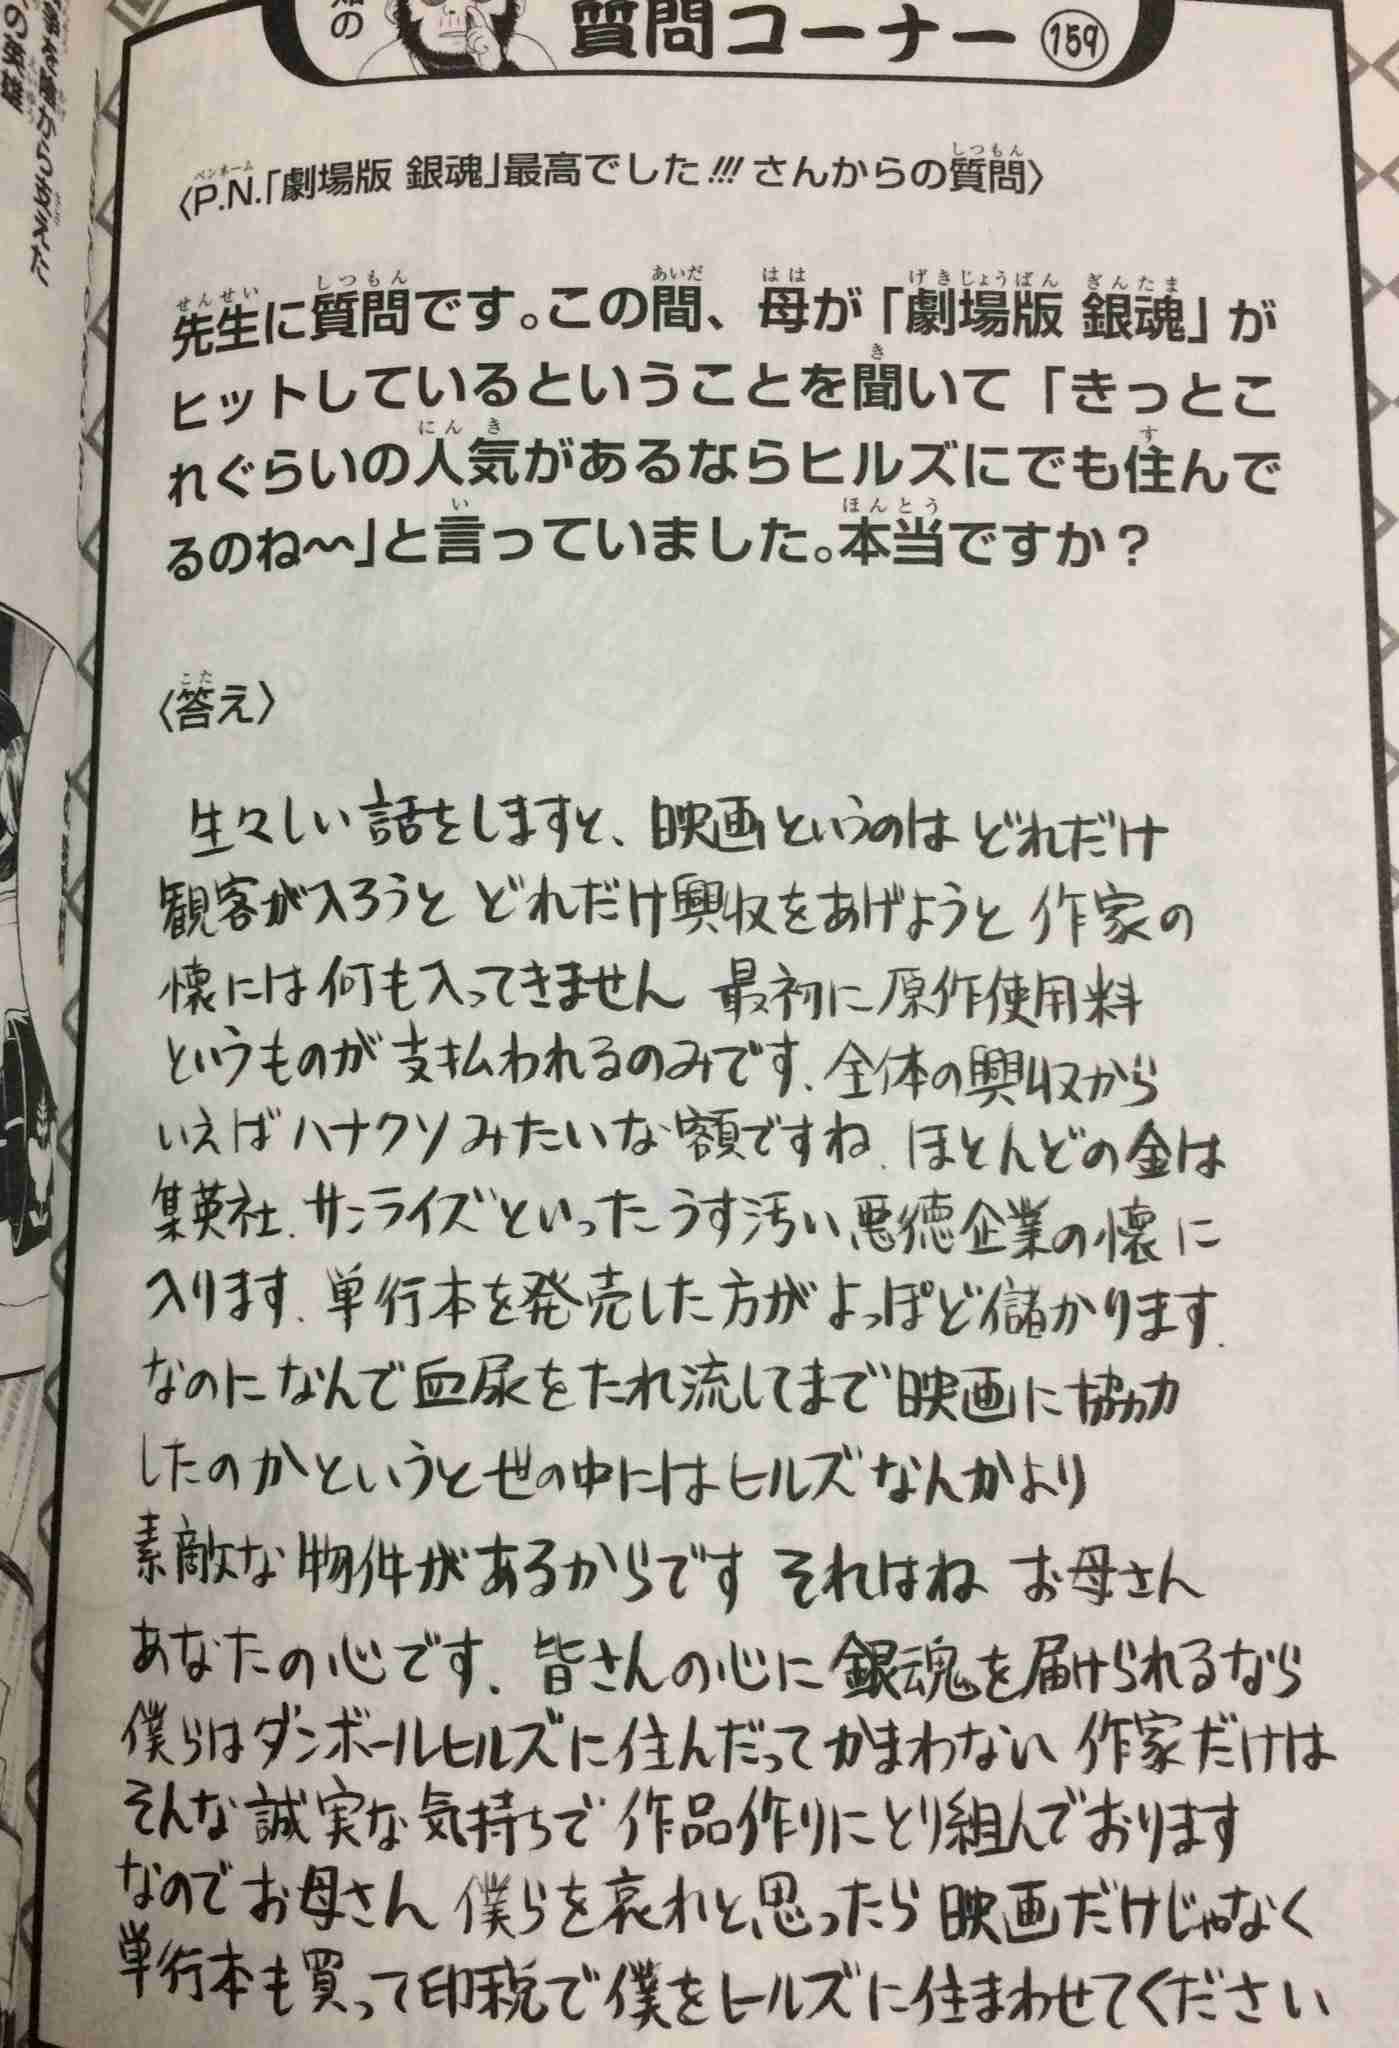 質問コーナー 159
〈P.N.「劇場版 銀魂」最高でした!!! さんからの質問〉
先生に質問です。この間、母が「劇場版 銀魂」が
ヒットしているということを聞いて「きっとこ
れぐらいの人気があるならヒルズにでも住んで
るのね〜〜」と言っていました。本当ですか？
〈答え〉
生々しい話をしますと、映画というのは どれだけ
観客が入ろうと どれだけ興収をあげようと 作家の
懐には何も入ってきません 最初に原作使用料
というものが支払われるのみです、全体の興収から
いえばハナクソみたいな額ですね、ほとんどの金は
集英社、サンライズといったうす汚い悪徳企業の懐に
入ります、単行本を発売した方がよっぽど儲かります、
なのになんで血尿をたれ流してまで映画に協力
したのかというと世の中にはヒルズなんかより
素敵な物件があるからです それはね お母さん
あなたの心です、皆さんの心に銀魂を届けられるなら
僕らはダンボールヒルズに住んだってかまわない 作家だけは
そんな誠実な気持ちで作品作りにとり組んでおります
なのでお母さん 僕らを哀れと思ったら映画だけじゃなく
単行本も買って印税で僕をヒルズに住まわせてください